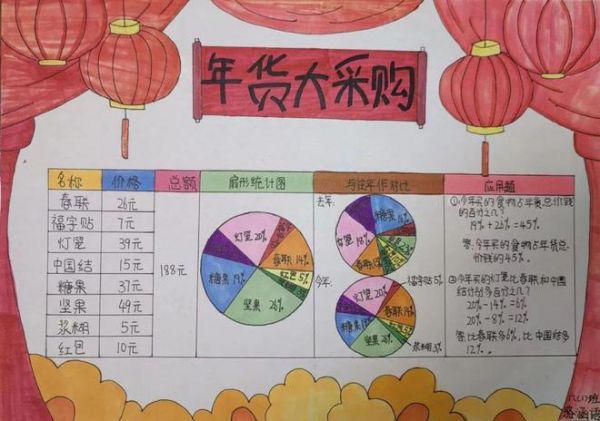 年货大采购
名称 价格 总额 扇形统计图 与往年作对比 应用题
春联 26元
福字贴 7元
灯笼 39元
中国结 15元
糖果 37元
坚果 49元
浆糊 5元
红包 10元
188元
灯笼 20%
春联 14%
红包 5%
坚果 26%
糖果 19%
去年:
糖果
今年:
灯笼 20%
福字贴 5%
春联
糖果
坚果 26%
浆糊 3%
①今年买的食物占年货总价钱
的百分之几?
19%+26%=45%
答:今年买的食物占年货总
价钱的45%。
②今年买的灯笼比春联和中国
结分别多百分之几?
20%-14%=6%
20%-8%=12%
答:比春联多6%,比中国结多
12%。